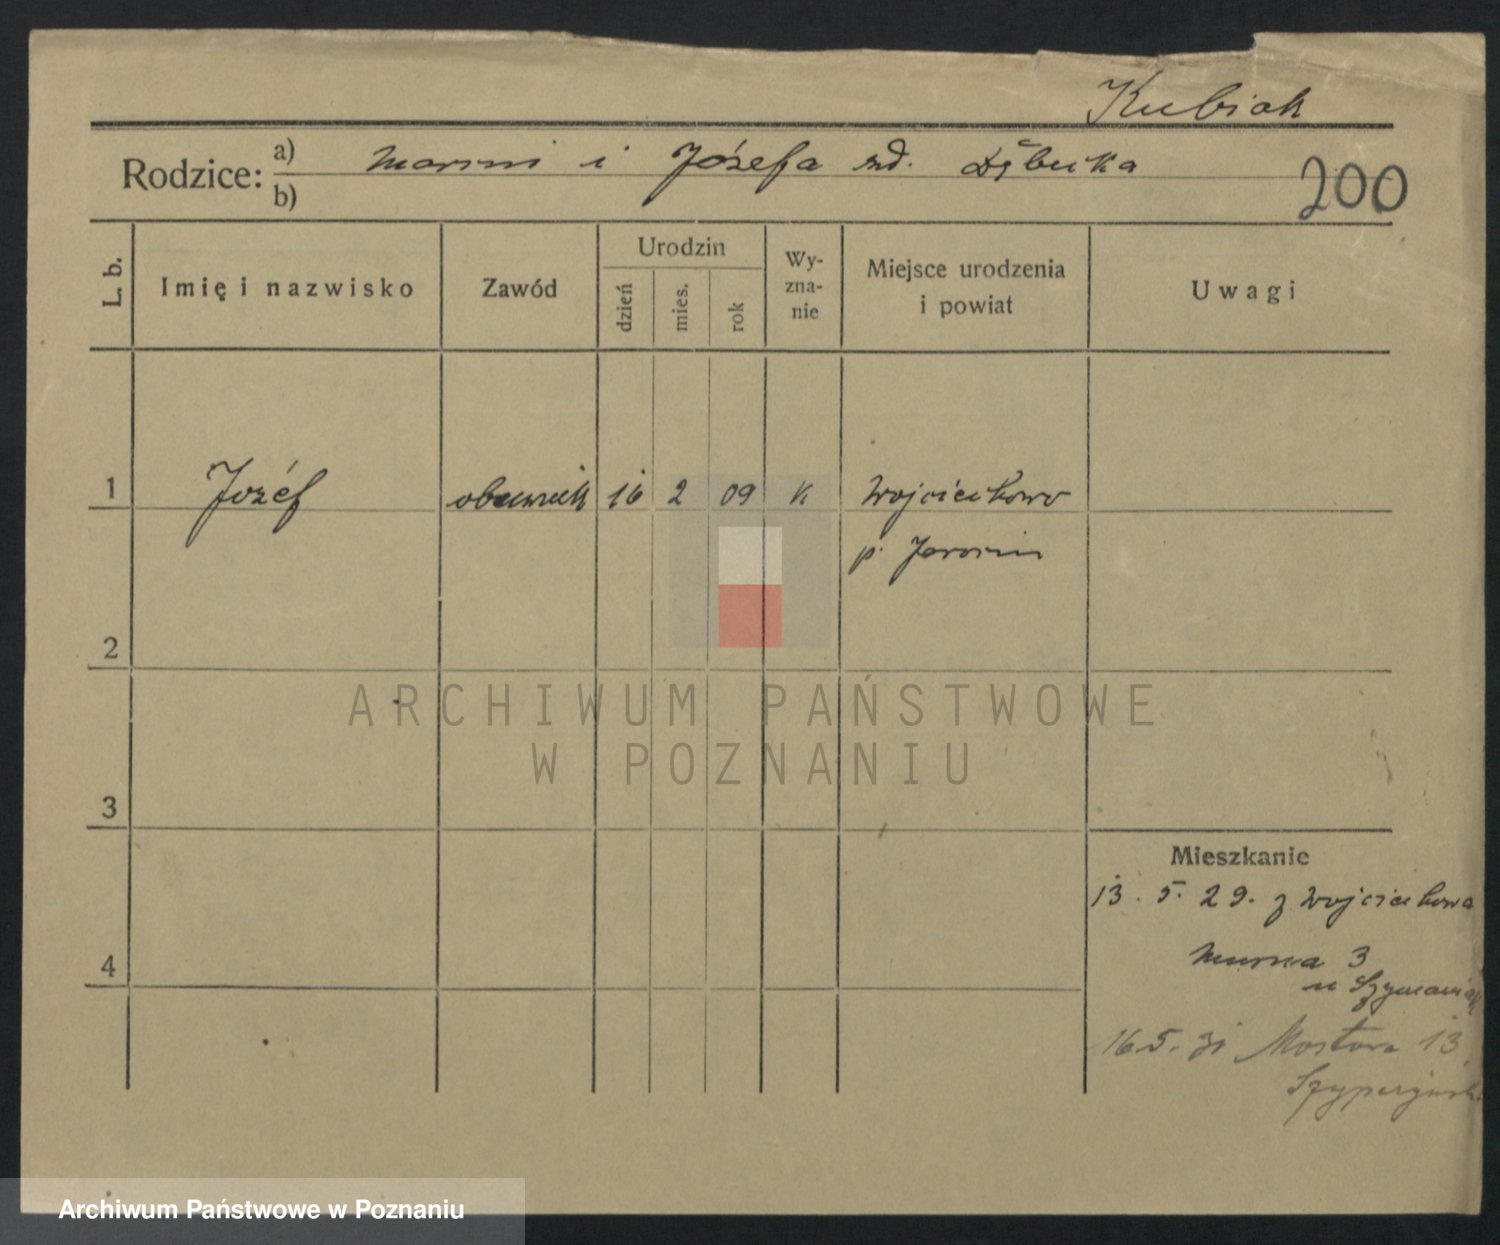 Kubiak
Rodzice: a) Marcin i Józefa zd. Dębicka
b)
200
L. b.
Imię i nazwisko
Zawód
Urodzin
dzień
mies.
rok
Wy-
zna-
nie
Miejsce urodzenia
i powiat
Uwagi
1 Józef 16 2 09 k Wojciechowo
p. Jarocin
2
ARCHIWUM PAŃSTWOWE
W POZNANIU
3
Mieszkanie
13. 5. 29. z Wojciechowa
4
Murna 3
u Szymaniak
16.5.31 Mostowa 13
Archiwum Państwowe w Poznaniu